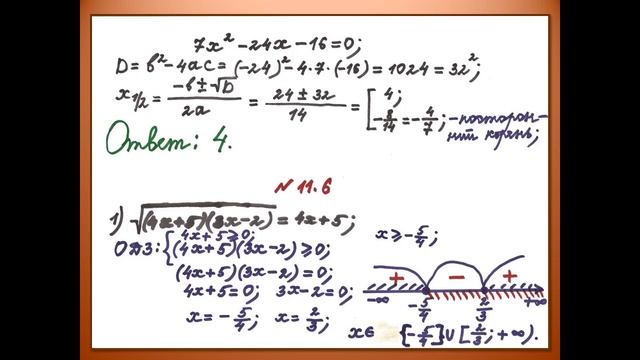 7x² - 24x - 16 = 0;
D = b² - 4ac = (-24)² - 4·7·(-16) = 1024 = 32²;
x1/2 = (-b ± √D)/(2a) = (24 ± 32)/14 = [4; -8/14 = -4/7; - посторон-
ний корень;
Ответ: 4.
N 11.6
1) √((4x+5)(3x-2)) = 4x+5;
ОДЗ: { 4x+5 ≥ 0; x ≥ -5/4;
(4x+5)(3x-2) ≥ 0;
(4x+5)(3x-2) = 0;
4x+5=0; 3x-2=0;
x = -5/4; x = 2/3;
+ - +
-∞ -5/4 2/3 +∞
x ∈ {-5/4} ∪ [2/3; +∞).